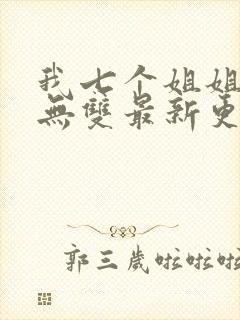 我七个姐姐
無雙最新更
郭三歲啦啦啦